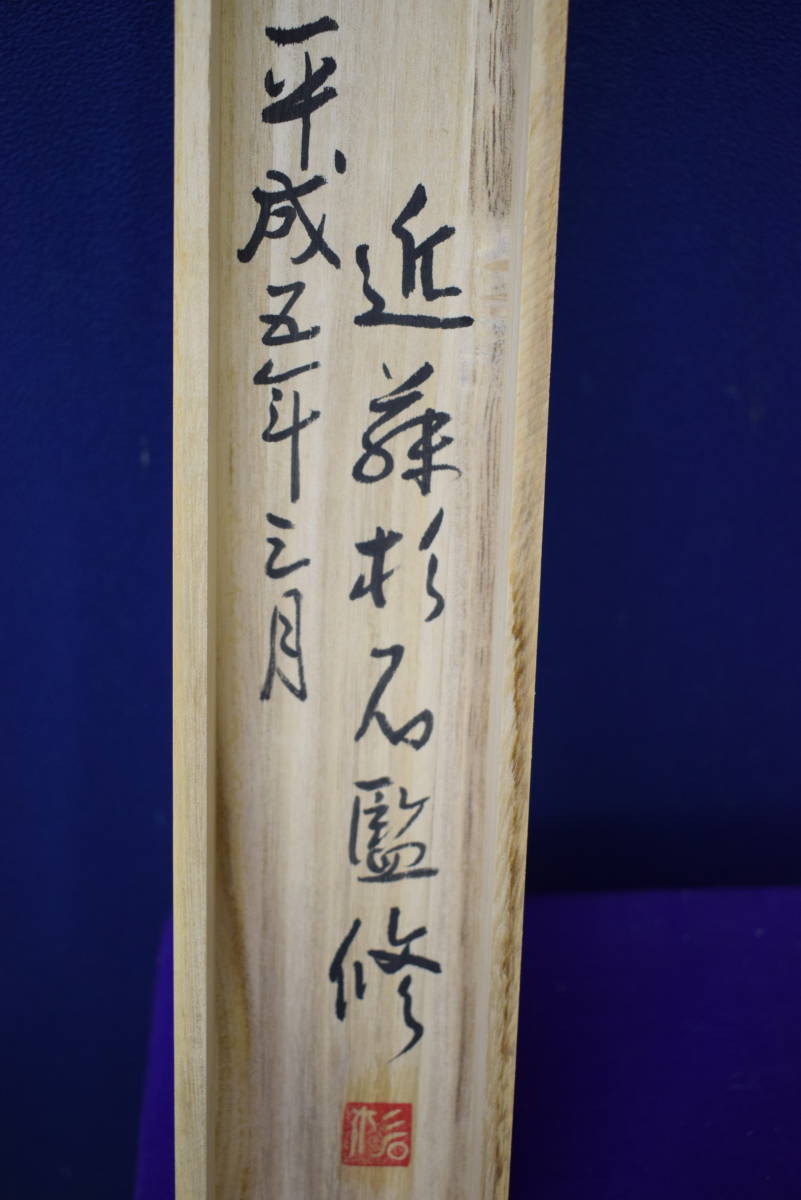 近藤杉石監修
平成五年三月
杉石